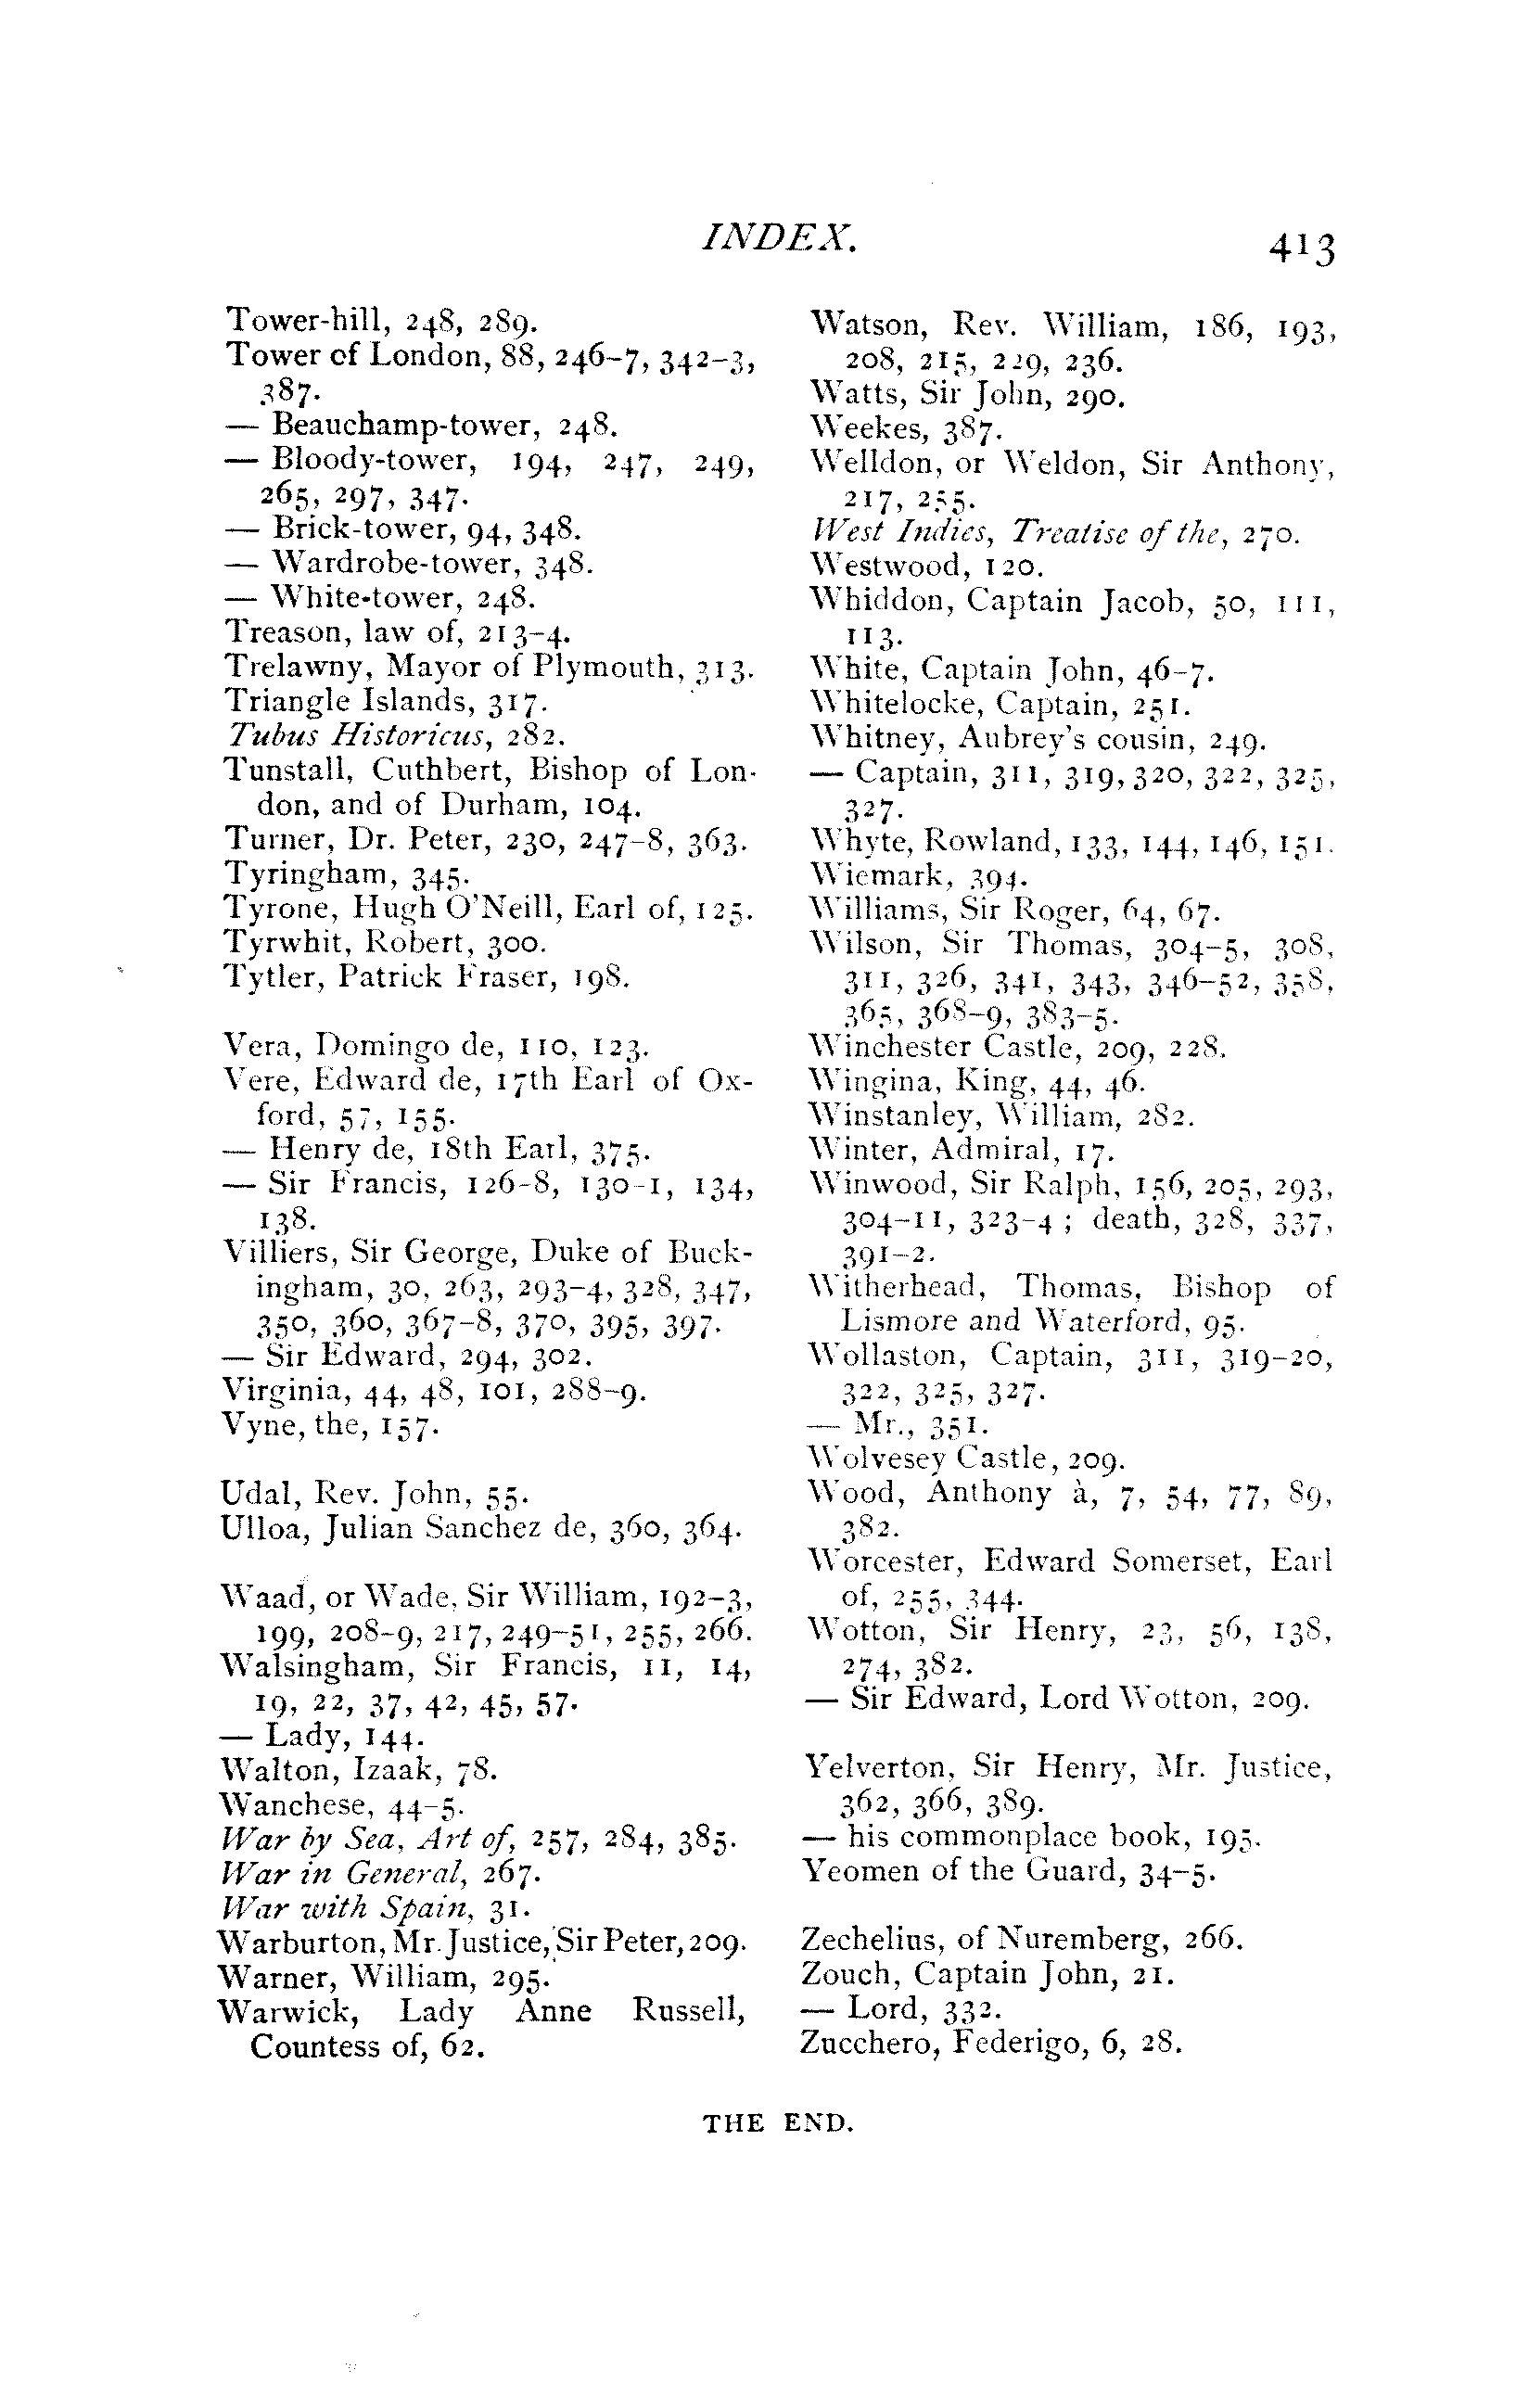 INDEX.
413
Tower-hill, 248, 289.
Tower of London, 88, 246–7, 342–3,
387.
— Beauchamp-tower, 248.
— Bloody-tower, 194, 247, 249,
265, 297, 347.
— Brick-tower, 94, 348.
— Wardrobe-tower, 348.
— White-tower, 248.
Treason, law of, 213–4.
Trelawny, Mayor of Plymouth, 313.
Triangle Islands, 317.
Tubus Historicus, 282.
Tunstall, Cuthbert, Bishop of Lon-
don, and of Durham, 104.
Turner, Dr. Peter, 230, 247–8, 363.
Tyringham, 345.
Tyrone, Hugh O'Neill, Earl of, 125.
Tyrwhit, Robert, 300.
Tytler, Patrick Fraser, 198.
Vera, Domingo de, 110, 123.
Vere, Edward de, 17th Earl of Ox-
ford, 57, 155.
— Henry de, 18th Earl, 375.
— Sir Francis, 126–8, 130–1, 134,
138.
Villiers, Sir George, Duke of Buck-
ingham, 30, 263, 293–4, 328, 347,
350, 360, 367–8, 370, 395, 397.
— Sir Edward, 294, 302.
Virginia, 44, 48, 101, 288–9.
Vyne, the, 157.
Udal, Rev. John, 55.
Ulloa, Julian Sanchez de, 360, 364.
Waad, or Wade, Sir William, 192–3,
199, 208–9, 217, 249–51, 255, 266.
Walsingham, Sir Francis, 11, 14,
19, 22, 37, 42, 45, 57.
— Lady, 144.
Walton, Izaak, 78.
Wanchese, 44–5.
War by Sea, Art of, 257, 284, 385.
War in General, 267.
War with Spain, 31.
Warburton, Mr. Justice, Sir Peter, 209.
Warner, William, 295.
Warwick, Lady Anne Russell,
Countess of, 62.
Watson, Rev. William, 186, 193,
208, 215, 229, 236.
Watts, Sir John, 290.
Weekes, 387.
Welldon, or Weldon, Sir Anthony,
217, 255.
West Indies, Treatise of the, 270.
Westwood, 120.
Whiddon, Captain Jacob, 50, 111,
113.
White, Captain John, 46–7.
Whitelocke, Captain, 251.
Whitney, Aubrey's cousin, 249.
— Captain, 311, 319, 320, 322, 325,
327.
Whyte, Rowland, 133, 144, 146, 151.
Wiemark, 394.
Williams, Sir Roger, 64, 67.
Wilson, Sir Thomas, 304–5, 308,
311, 326, 341, 343, 346–52, 358,
365, 368–9, 383–5.
Winchester Castle, 209, 228.
Wingina, King, 44, 46.
Winstanley, William, 282.
Winter, Admiral, 17.
Winwood, Sir Ralph, 156, 205, 293,
304–11, 323–4 ; death, 328, 337,
391–2.
Witherhead, Thomas, Bishop of
Lismore and Waterford, 95.
Wollaston, Captain, 311, 319–20,
322, 325, 327.
— Mr., 351.
Wolvesey Castle, 209.
Wood, Anthony à, 7, 54, 77, 89,
382.
Worcester, Edward Somerset, Earl
of, 255, 344.
Wotton, Sir Henry, 23, 56, 138,
274, 382.
— Sir Edward, Lord Wotton, 209.
Yelverton, Sir Henry, Mr. Justice,
362, 366, 389.
— his commonplace book, 195.
Yeomen of the Guard, 34–5.
Zechelius, of Nuremberg, 266.
Zouch, Captain John, 21.
— Lord, 332.
Zucchero, Federigo, 6, 28.
THE END.